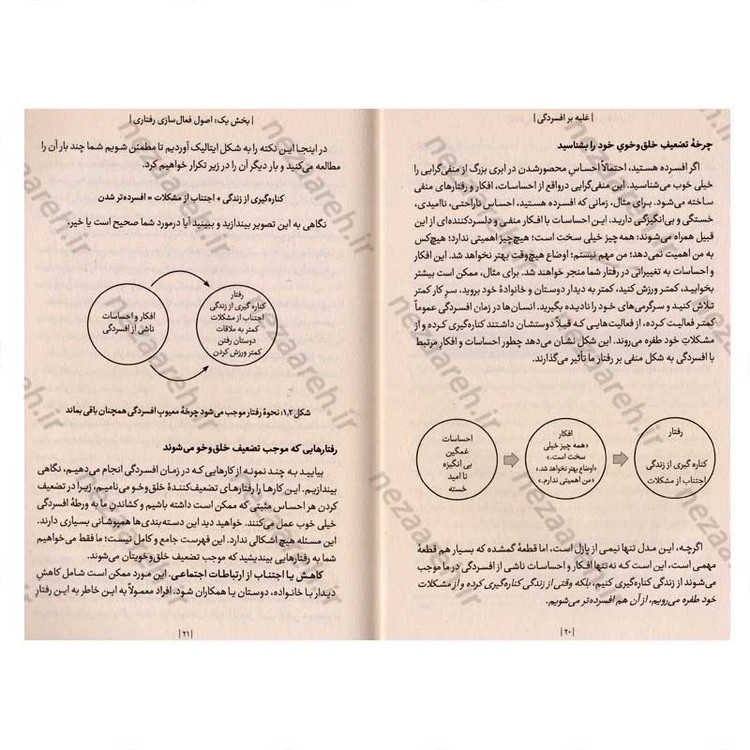 | غلبه بر افسردگی |
چرخهٔ تضعیف خلق‌وخوی خود را بشناسید
اگر افسرده هستید، احتمالاً احساسِ محصورشدن در ابری بزرگ از منفی‌گرایی را
خیلی خوب می‌شناسید. این منفی‌گرایی درواقع از احساسات، افکار و رفتارهای منفی
ساخته می‌شود. برای مثال، زمانی که افسرده هستید، احساس ناراحتی، ناامیدی،
خستگی و بی‌انگیزگی دارید. این احساسات با افکار منفی و دلسردکننده‌ای از این
قبیل همراه می‌شوند: همه چیز خیلی سخت است؛ هیچ‌چیز اهمیتی ندارد؛ هیچ‌کس
به من اهمیت نمی‌دهد؛ من مهم نیستم؛ اوضاع هیچ‌وقت بهتر نخواهد شد. این افکار
و احساسات به تغییراتی در رفتار شما منجر خواهند شد. برای مثال، ممکن است بیشتر
بخوابید، کمتر ورزش کنید، کمتر به دیدار دوستان و خانوادهٔ خود بروید، سرِ کار کمتر
تلاش کنید و سرگرمی‌های خود را نادیده بگیرید. انسان‌ها در زمان افسردگی عموماً
کمتر فعالیت کرده، از فعالیت‌هایی که قبلاً دوستشان داشتند کناره‌گیری کرده و از
مشکلاتِ خود طفره می‌روند. این شکل نشان می‌دهد چطور احساسات و افکارِ مرتبط
با افسردگی به شکل منفی بر رفتار ما تأثیر می‌گذارند.
احساسات
غمگین
بی انگیزه
نا امید
خسته
افکار
«همه چیز خیلی
سخت است.»
«اوضاع بهتر نخواهد شد.»
«من اهمیتی ندارم.»
رفتار
کناره گیری از زندگی
اجتناب از مشکلات
اگرچه، این مدل تنها نیمی از پازل است، اما قطعهٔ گمشده که بسیار هم قطعهٔ
مهمی است، این است که نه‌تنها افکار و احساسات ناشی از افسردگی در ما موجب
می‌شوند از زندگی کناره‌گیری کنیم، بلکه وقتی از زندگی کناره‌گیری کرده و از مشکلات
خود طفره می‌رویم، از آن هم افسرده‌تر می‌شویم.
| ۲۰ |
| بخش یک: اصول فعال‌سازی رفتاری |
در اینجا این نکته را به شکل ایتالیک آوردیم تا مطمئن شویم شما چند بار آن را
مطالعه می‌کنید و بار دیگر آن را در زیر تکرار خواهیم کرد.
کناره‌گیری از زندگی + اجتناب از مشکلات = افسرده‌تر شدن
نگاهی به این تصویر بیندازید و ببینید آیا درمورد شما صحیح است یا خیر.
افکار و احساسات
ناشی از افسردگی
رفتار
کناره گیری از زندگی
اجتناب از مشکلات
کمتر به ملاقات
دوستان رفتن
کمتر ورزش کردن
شکل ۱,۲: نحوهٔ رفتار موجب می‌شود چرخهٔ معیوبِ افسردگی همچنان باقی بماند
رفتارهایی که موجب تضعیف خلق‌وخو می‌شوند
بیایید به چند نمونه از کارهایی که در زمان افسردگی انجام می‌دهیم، نگاهی
بیندازیم. این کارها را رفتارهای تضعیف‌کنندهٔ خلق‌وخو می‌نامیم، زیرا در تضعیف
کردن هر احساس مثبتی که ممکن است داشته باشیم و کشاندنِ ما به ورطهٔ افسردگی
خیلی خوب عمل می‌کنند. خواهید دید این دسته‌بندی‌ها همپوشانی بسیاری دارند.
این مسئله هیچ اشکالی ندارد. این فهرست جامع و کامل نیست؛ ما فقط می‌خواهیم
شما به رفتارهایی بیندیشید که موجب تضعیف خلق‌وخویتان می‌شوند.
کاهش یا اجتناب از ارتباطات اجتماعی. این مورد ممکن است شامل کاهشِ
دیدار با خانواده، دوستان یا همکاران شود. افراد معمولاً به این خاطر به این رفتارِ
| ۲۱ |
nezaareh.ir
nezaareh.ir
nezaareh.ir
nezaareh.ir
nezaareh.ir
nezaareh.ir